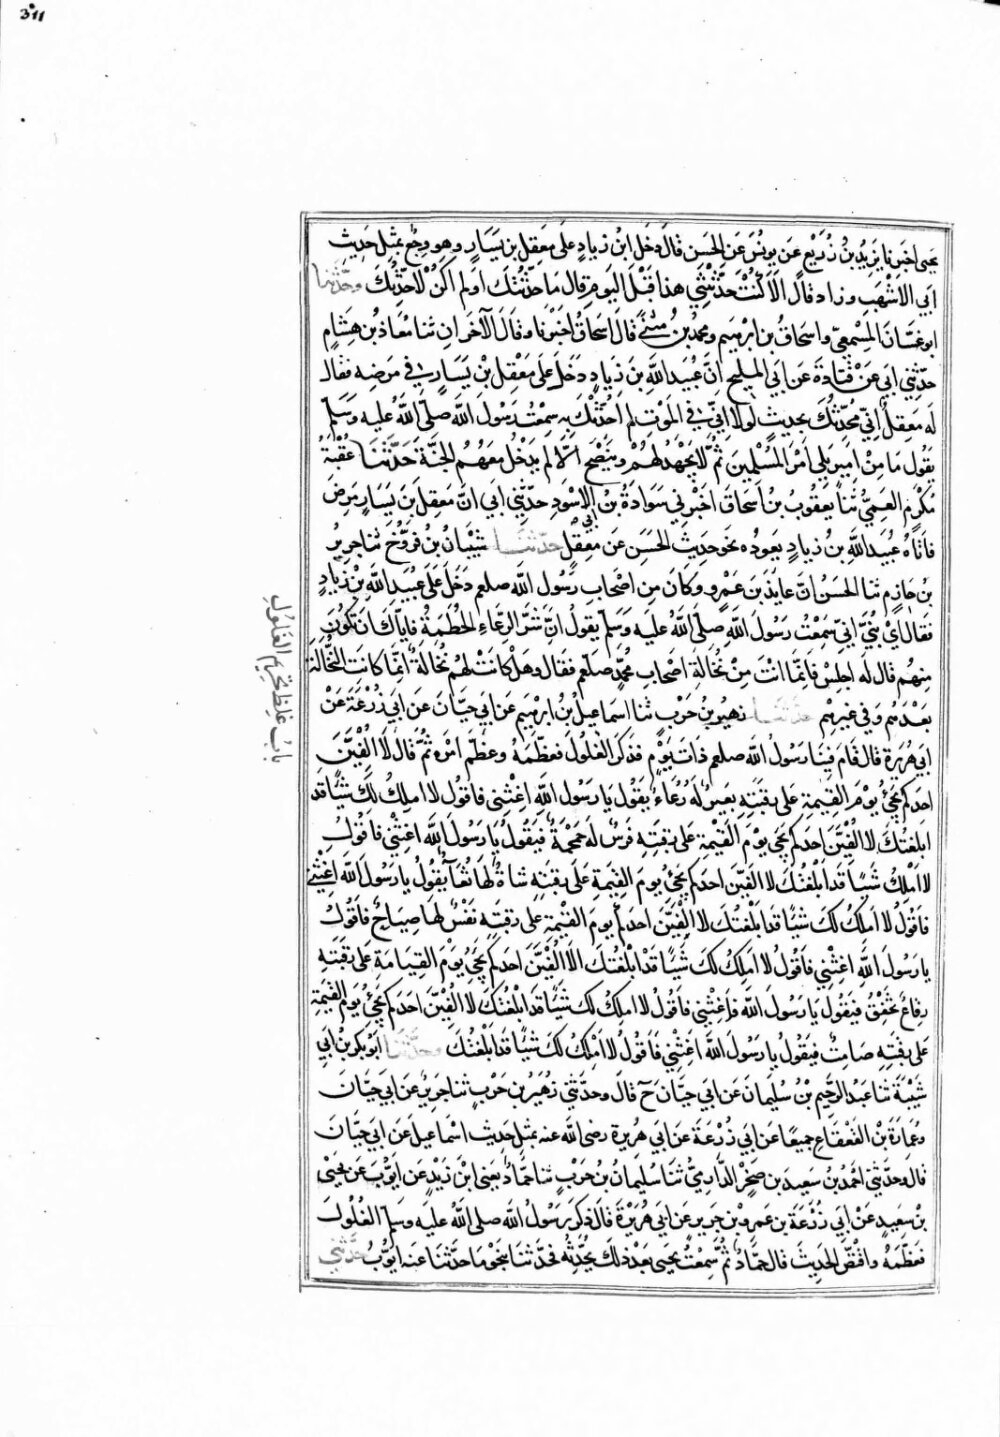 311
يحيى اخبرنا يزيد بن زريع عن يونس عن الحسن قال دخل ابن زياد على معقل بن يسار وهو وجع بمثل حديث
ابي الاشهب وزاد قال الا كنت حدثتني هذا قبل اليوم قال ما حدثتك اولم اكن لاحدثك وحدثنا
ابو غسان المسمعي واسحاق بن ابرهيم ومحمد بن مثنى قال اسحاق اخبرنا وقال الآخران ثنا معاذ بن هشام
حدثني ابي عن قتادة عن ابي المليح ان عبيد الله بن زياد دخل على معقل بن يسار في مرضه فقال
له معقل اني محدثك بحديث لولا اني في الموت لم احدثك به سمعت رسول الله صلى الله عليه وسلم
يقول ما من امير يلي امر المسلمين ثم لا يجهد لهم وينصح الا لم يدخل معهم الجنة حدثنا عقبة
مكرم العمي ثنا يعقوب بن اسحاق اخبرني سوادة بن ابي الاسود حدثني ابي ان معقل بن يسار مرض
فاتاه عبيد الله بن زياد يعوده نحو حديث الحسن عن معقل حدثنا شيبان بن فروخ ثنا جرير
بن حازم ثنا الحسن ان عايذ بن عمرو وكان من اصحاب رسول الله صلعم دخل على عبيد الله بن زياد
فقال اي بني اني سمعت رسول الله صلى الله عليه وسلم يقول ان شر الرعاء الحطمة فاياك ان تكون
منهم قال له اجلس فانما انت من نخالة اصحاب محمد صلعم فقال وهل كانت لهم نخالة انما كانت النخالة
بعدهم وفي غيرهم حدثنا زهير بن حرب ثنا اسماعيل بن ابرهيم عن ابي حيان عن ابي زرعة عن
ابي هريرة قال قام فينا رسول الله صلعم ذات يوم فذكر الغلول فعظمه وعظم امره ثم قال لا الفين
احدكم يجئ يوم القيمة على رقبته بعير له رغاء يقول يا رسول الله اغثني فاقول لا املك لك شيئا قد
ابلغتك لا الفين احدكم يجي يوم القيمة على رقبته فرس له حمحمة فيقول يا رسول الله اغثني فاقول
لا املك شيئا قد ابلغتك لا الفين احدكم يجئ يوم القيمة على رقبته شاة لها ثغا يقول يا رسول الله اغثني
فاقول لا املك لك شيئا قد ابلغتك لا الفين احدكم يوم القيمة على رقبته نفس لها صياح فاقول
يا رسول الله اغثني فاقول لا املك لك شيئا قد ابلغتك الا الفين احدكم يجئ يوم القيامة على رقبته
رقاع تخفق فيقول يا رسول الله فاغثني فاقول لا املك لك شيئا قد ابلغتك لا الفين احدكم يجئ يوم القيمة
على رقبته صامت فيقول يا رسول الله اغثني فاقول لا املك لك شيئا قد ابلغتك وحدثنا ابو بكر بن ابي
شيبة ثنا عبد الرحيم بن سليمان عن ابي حيان ح قال وحدثني زهير بن حرب ثنا جرير عن ابي حيان
وعمارة بن القعقاع جميعا عن ابي زرعة عن ابي هريرة رضى الله عنه بمثل حديث اسماعيل عن ابي حيان
قال وحدثني احمد بن سعيد بن صخر الدارمي ثنا سليمان بن حرب ثنا حماد يعنى ابن زيد عن ايوب عن يحيى
بن سعيد عن ابي زرعة بن عمرو بن جرير عن ابي هريرة قال ذكر رسول الله صلى الله عليه وسلم الغلول
فعظمه واقتص الحديث قال حماد ثم سمعت يحيى بعد ذلك يحدثه فحدثنا بنحو ما حدثنا عنه ايوب حدثني
باب غلظ تحريم الغلول